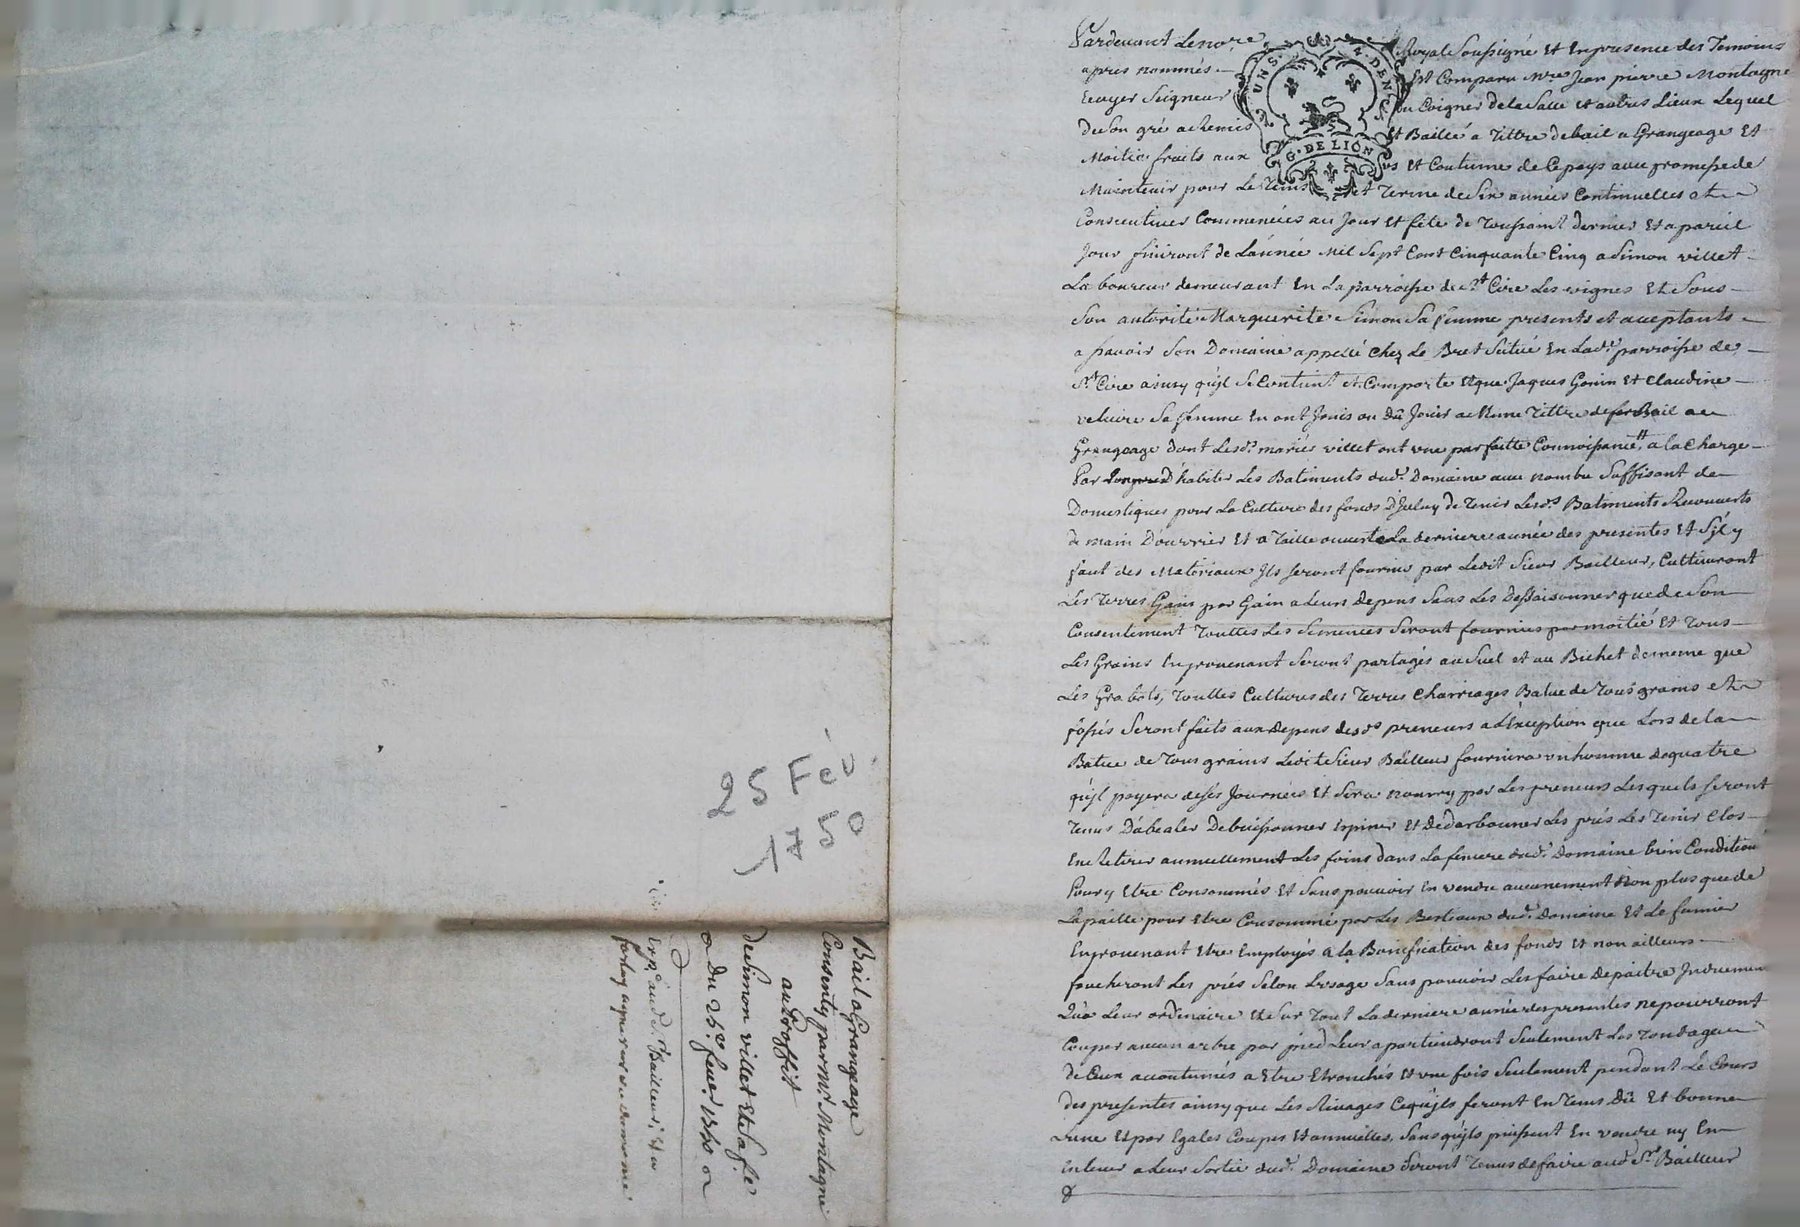 Pardevant Le no.re Royal Soussigné Et En presence des Temoins
apres nommés Est Comparu M.re Jean pierre Montagne
Ecuyer Seigneur du Coignet de la Salle et autres Lieux Lequel
de Son gré a Remis Et Baillé a Tittre de bail a Grangeage Et
Moitié fruits aux us Et Coutume de Ce pays avec promesse de
Maintenir pour Le Tems et Terme de Six années Continuelles et
Consecutives Commencées au Jour Et fête de Toussaint dernier Et a pareil
Jour finiront de L'année Mil Sept Cent Cinquante Cinq a Simon villet
Laboureur demeurant En La parroisse de S.t Cire Les vignes Et Sous
Son autorité Marguerite Simon Sa femme presents et acceptants
a sçavoir Son Domaine appellé Chez Le Bret Scitué En Lad.e parroisse de
S.t Cire ainsy qu'jl Se Contient et Comporte Et que Jaques Gonin Et Claudine
veluire Sa femme En ont Jouis ou dû Jouir a Meme Tittre de Bail au
Grangeage dont Lesd.s mariés villet ont une parfaitte Connoissance a la Charge
Par d'habiter Les Batiments dud.t Domaine avec nombre Suffisant de
Domestiques pour La Culture des fonds D'jceluy de Tenir Lesd.s Batiments Recouverts
de main D'ouvrier Et a Taille ouverte La derniere année des presentes Et S'jl y
faut des Materiaux Jls Seront fournis par Ledit Sieur Bailleur, Cultiveront
Les Terres Gain par Gain a Leurs depens Sans Les Dessaisonner que de Son
Consentement Touttes Les Semences Seront fournies par moitié Et Tous
Les Grains En provenant Seront partagés au Suel et au Bichet de meme que
Les Grabots, Touttes Cultures des Terres Charriages Batue de Tous grains et
fossés Seront faits aux depens desd.s preneurs a L'Exception que Lors de la
Batue de Tous grains Ledit Sieur Bailleur fournira un homme de quatre
qu'jl payera de Ses Journées Et Sera nourry par Les preneurs Lesquels Seront
Tenus D'abealer Debuissonner Epiner Et Dédarbouner Les prés Les Tenir Clos
En Retirer annuellement Les foins dans La feniere dud.t Domaine bien Conditionné
Pour y Etre Consommés Et Sans pouvoir En vendre aucunement Non plus que de
La paille pour Etre Consommé par Les Bestiaux dud.t Domaine Et Le fumier
En provenant Etre Employés a la Bonification des fonds Et non ailleurs
faucheront Les prés Selon L'usage Sans pouvoir Les faire depaitre
Qu'a Leur ordinaire Et Sur Tout La derniere année des presentes ne pourront
Couper aucun arbre par pied Leur apartiendront Seulement Les Tondages
de Ceux accoutumés a Etre Etronchés Et une fois Seulement pendant Le Cours
des presentes ainsy que Les Rivages Ce qu'jls feront En Tems Dû Et bonne
Lune Et par Egales Coupes Et annuelles, Sans qu'jls puissent En vendre ny En
Enlever a Leur Sortie dud.t Domaine Seront Tenus de faire aud.t S.r Bailleur
G. DE LION
25 Fév.
1750
Bail a Grangeage
Consenty par M.r Montagne
au Proffit
de Simon villet Et Sa fe.
Du 25.e fevr. 1750
Exp.on aud.t Bailleur